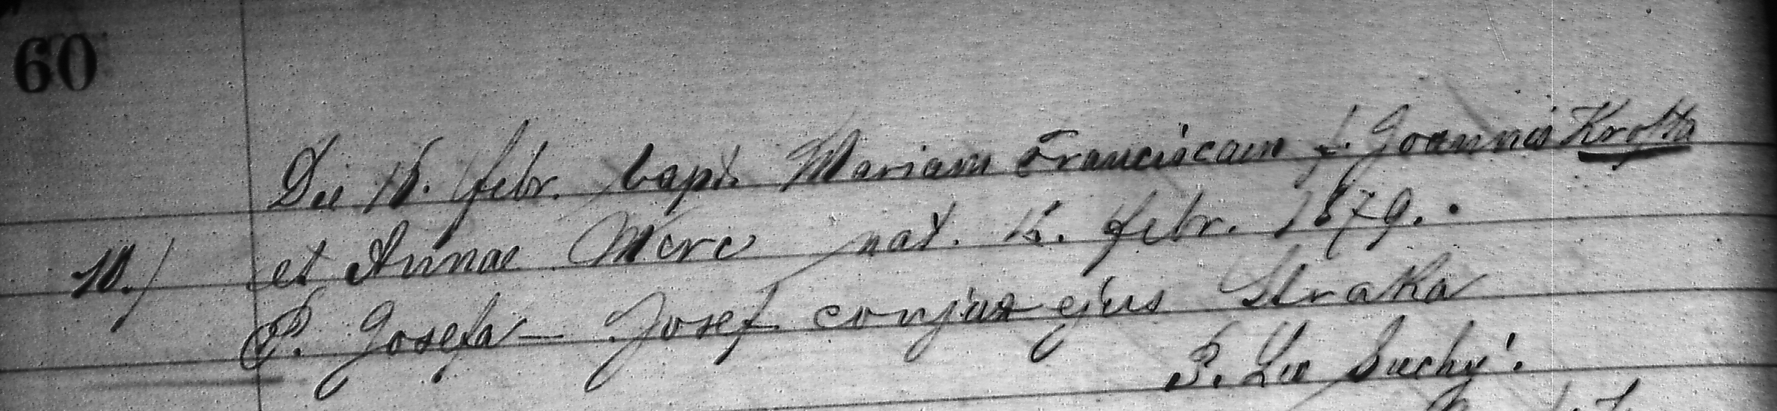 60
Die 16. febr. bapt. Mariam Franciscam f. Joannis Krofta
10./ et Annae nat. 12. febr. 1879.
P. Josefa — Josef conjux ejus Straka
P. Leo Suchý.